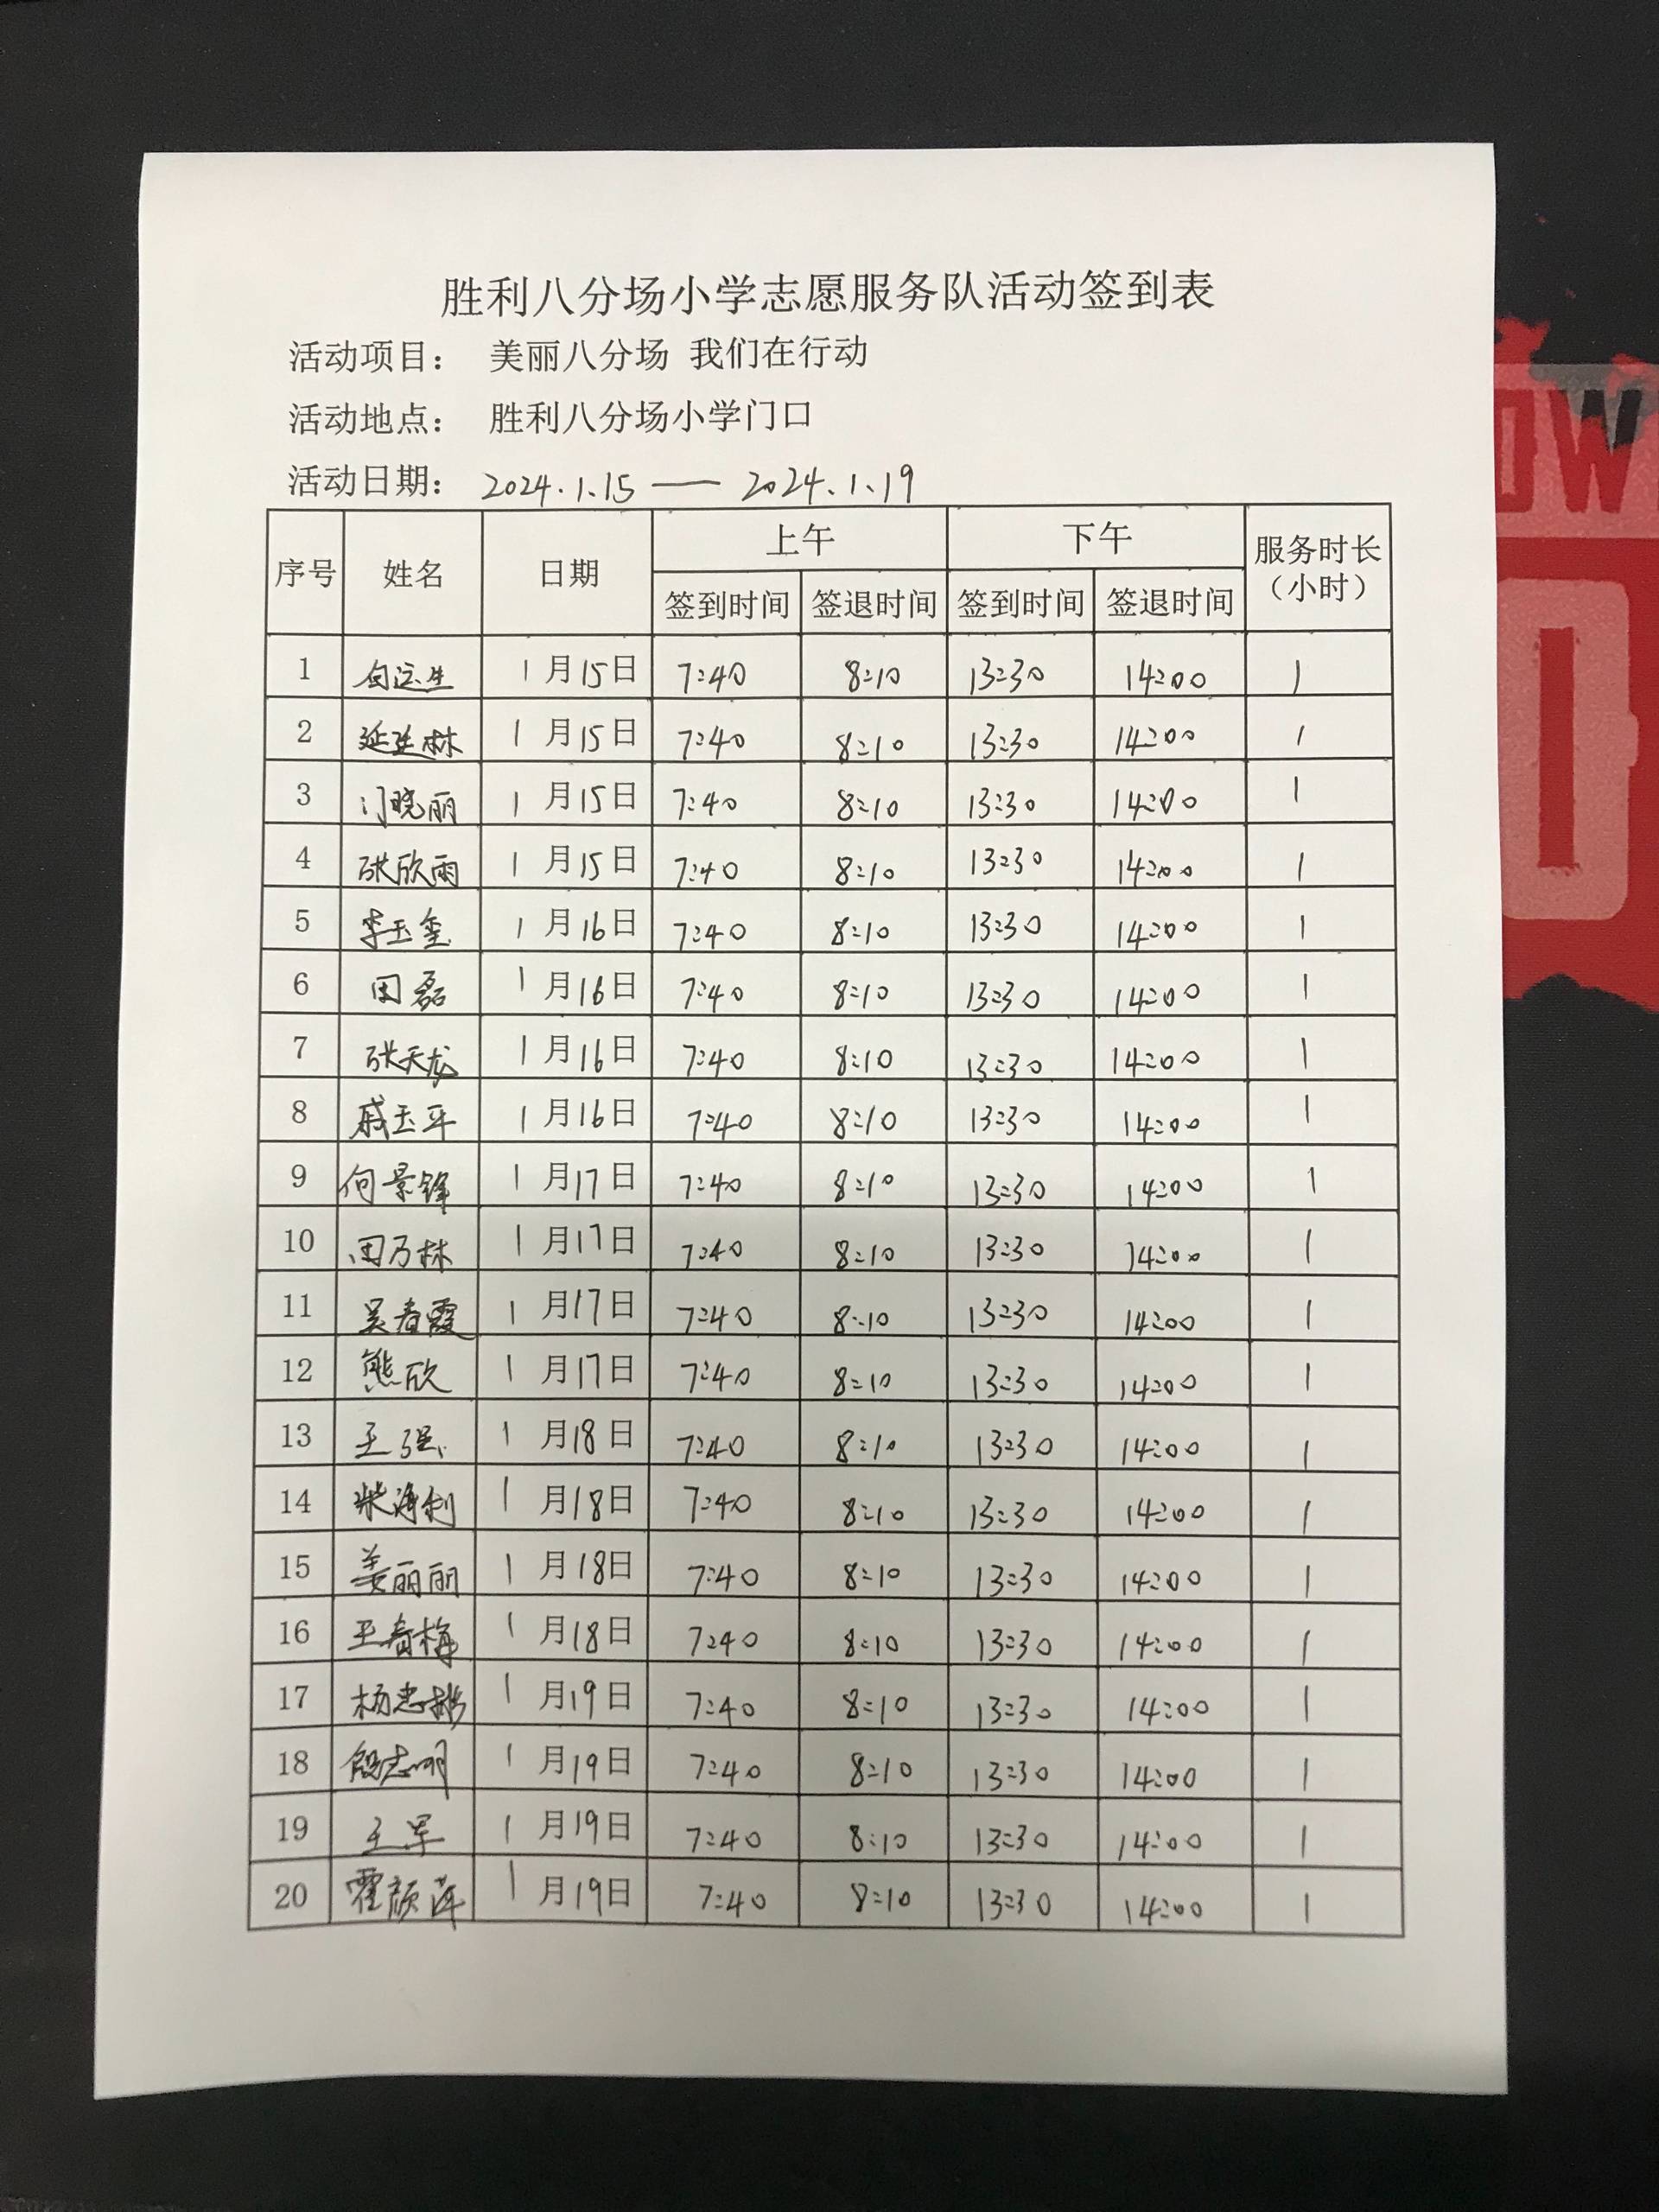 胜利八分场小学志愿服务队活动签到表
活动项目： 美丽八分场 我们在行动
活动地点： 胜利八分场小学门口
活动日期： 2024.1.15 — 2024.1.19
序号 姓名 日期 上午 下午 服务时长（小时）
签到时间 签退时间 签到时间 签退时间
1 白运生 1月15日 7:40 8:10 13:30 14:00 1
2 延建林 1月15日 7:40 8:10 13:30 14:00 1
3 门晓丽 1月15日 7:40 8:10 13:30 14:00 1
4 张欣雨 1月15日 7:40 8:10 13:30 14:00 1
5 李玉玺 1月16日 7:40 8:10 13:30 14:00 1
6 田磊 1月16日 7:40 8:10 13:30 14:00 1
7 张天龙 1月16日 7:40 8:10 13:30 14:00 1
8 戚玉平 1月16日 7:40 8:10 13:30 14:00 1
9 何景锋 1月17日 7:40 8:10 13:30 14:00 1
10 田乃林 1月17日 7:40 8:10 13:30 14:00 1
11 吴春霞 1月17日 7:40 8:10 13:30 14:00 1
12 熊欣 1月17日 7:40 8:10 13:30 14:00 1
13 王强 1月18日 7:40 8:10 13:30 14:00 1
14 柴海利 1月18日 7:40 8:10 13:30 14:00 1
15 姜丽丽 1月18日 7:40 8:10 13:30 14:00 1
16 王春梅 1月18日 7:40 8:10 13:30 14:00 1
17 1月19日 7:40 8:10 13:30 14:00 1
18 殷志明 1月19日 7:40 8:10 13:30 14:00 1
19 王军 1月19日 7:40 8:10 13:30 14:00 1
20 霍颜萍 1月19日 7:40 8:10 13:30 14:00 1